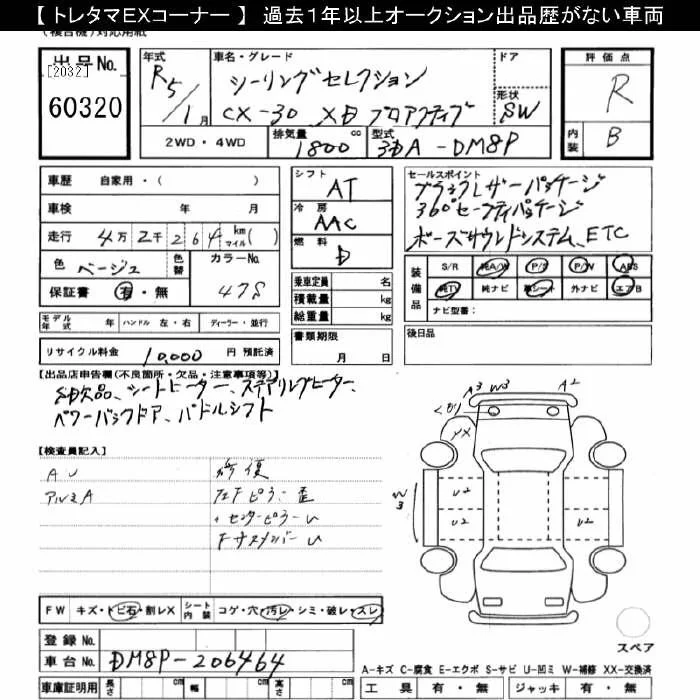 【 トレタマEXコーナー 】 過去1年以上オークション出品歴がない車両
出品No.
[2032]
60320
年式
R5/1月
車名・グレード
シーリングセレクション
CX-30 XD プロアクティブ
ドア
形状
SW
評価点
R
内装
B
2WD・4WD
排気量 1800 cc
型式 3DA-DM8P
車歴 自家用・( )
車検 年 月
走行 4万2千264 km マイル( )
色 ベージュ
色替
カラーNo. 47S
保証書 有・無
シフト
AT
冷房
AAC
燃料
D
乗車定員 名
積載量 kg
総重量 kg
書類期限
月 日
セールスポイント
ブラックレザーパッケージ
360°セーフティパッケージ
ボーズサウンドシステム、ETC
装備品
S/R 純A/W P/S P/W ABS
純TV 純ナビ 革シート 外ナビ エアB
ナビ型番:
モデル年式 年 ハンドル 左・右 ディーラー・並行
リサイクル料金 10,000 円 預託済
後日品
【出品店申告欄(不良箇所・欠品・注意事項等)】
SD欠品、シートヒーター、ステアリングヒーター、
パワーバックドア、パドルシフト
【検査員記入】
AU
アルミA
修復
センターピラーU
A3 W3 A2
YX
W3
U2 U2
U2 U2
FW キズ・トビ石・割レX
シート内装 コゲ・穴・汚レ・シミ・破レ・スレ
スペア
登録No.
車台No. DM8P-206464
車庫証明用 長さ cm 幅 cm 高さ cm
A-キズ C-腐食 E-エクボ S-サビ U-凹ミ W-補修 XX-交換済
工具 有・無 ジャッキ 有・無